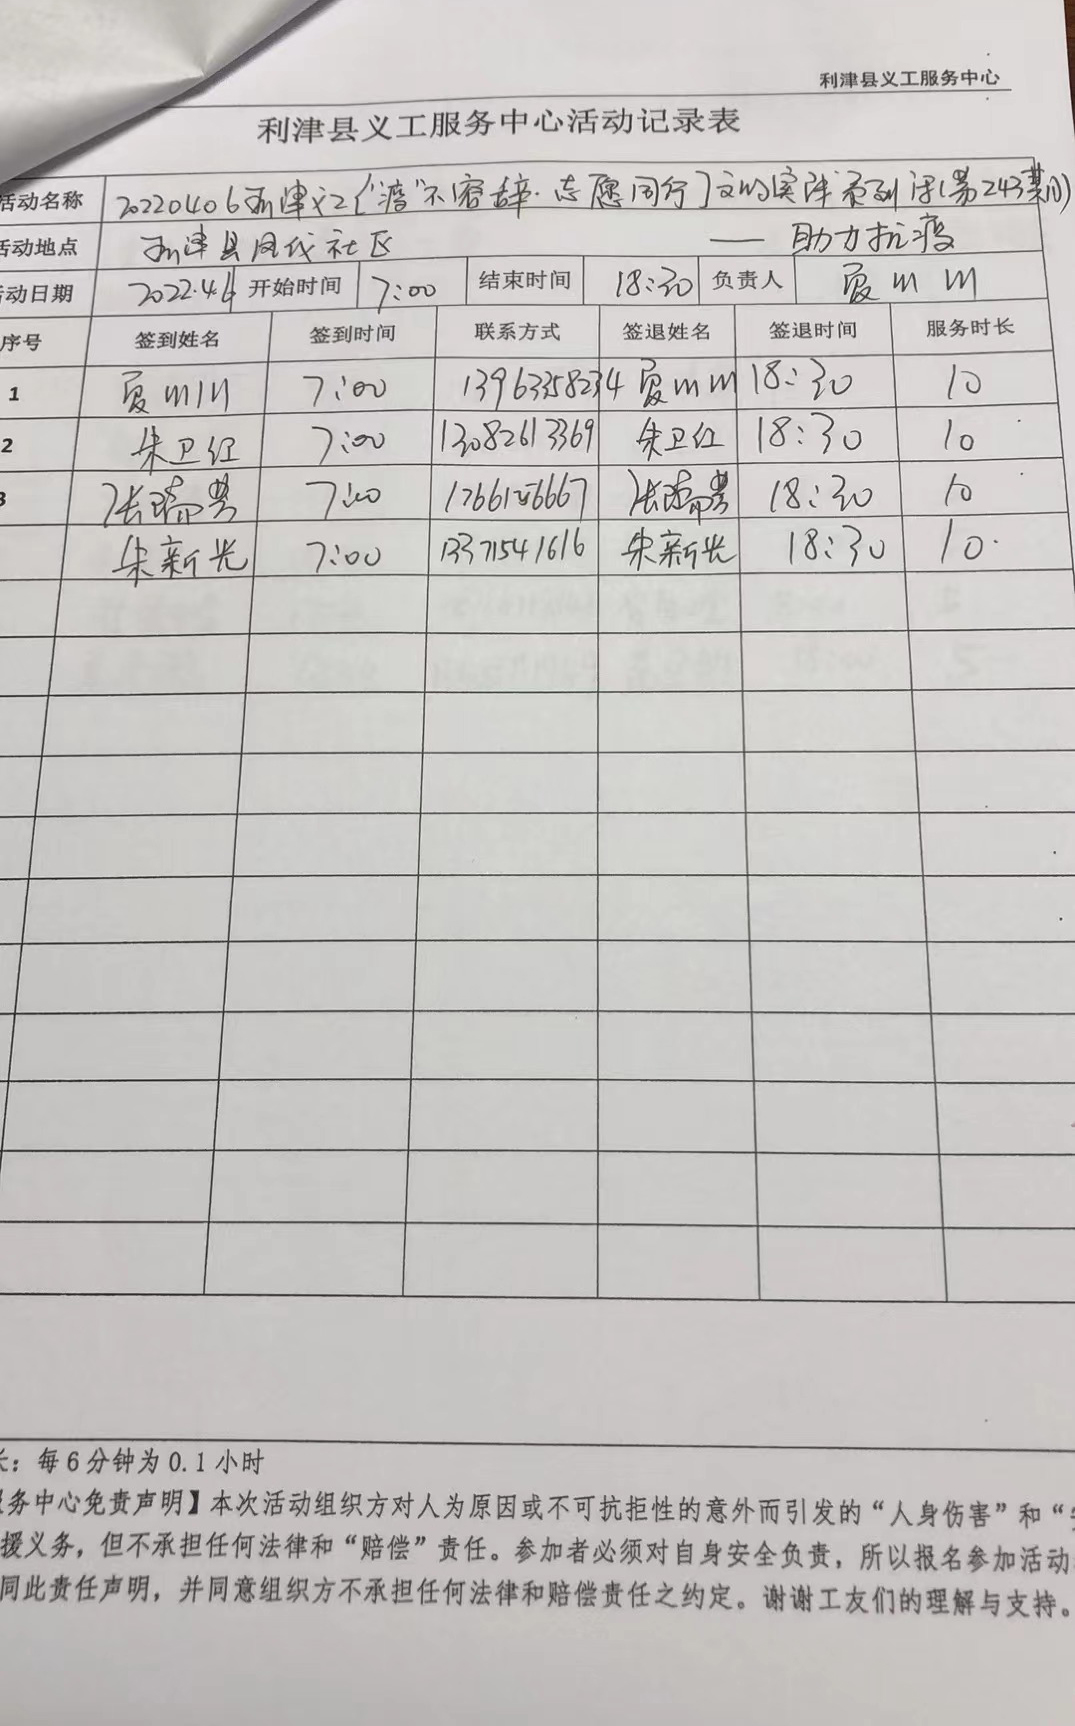 利津县义工服务中心
利津县义工服务中心活动记录表
活动名称 20220406利津义工["疫"不容辞·志愿同行]文明实践系列活动(第243期)
活动地点 利津县凤代社区 —— 助力抗疫
活动日期 2022.4.6 开始时间 7:00 结束时间 18:30 负责人 夏
序号 签到姓名 签到时间 联系方式 签退姓名 签退时间 服务时长
1 夏 7:00 13963358234 夏 18:30 10
2 朱卫红 7:00 13082613369 朱卫红 18:30 10
3 张瑞 7:00 张瑞 18:30 10
朱新光 7:00 13371541616 朱新光 18:30 10
长：每6分钟为0.1小时
服务中心免责声明】本次活动组织方对人为原因或不可抗拒性的意外而引发的“人身伤害”和“
援义务，但不承担任何法律和“赔偿”责任。参加者必须对自身安全负责，所以报名参加活动
同此责任声明，并同意组织方不承担任何法律和赔偿责任之约定。谢谢工友们的理解与支持。